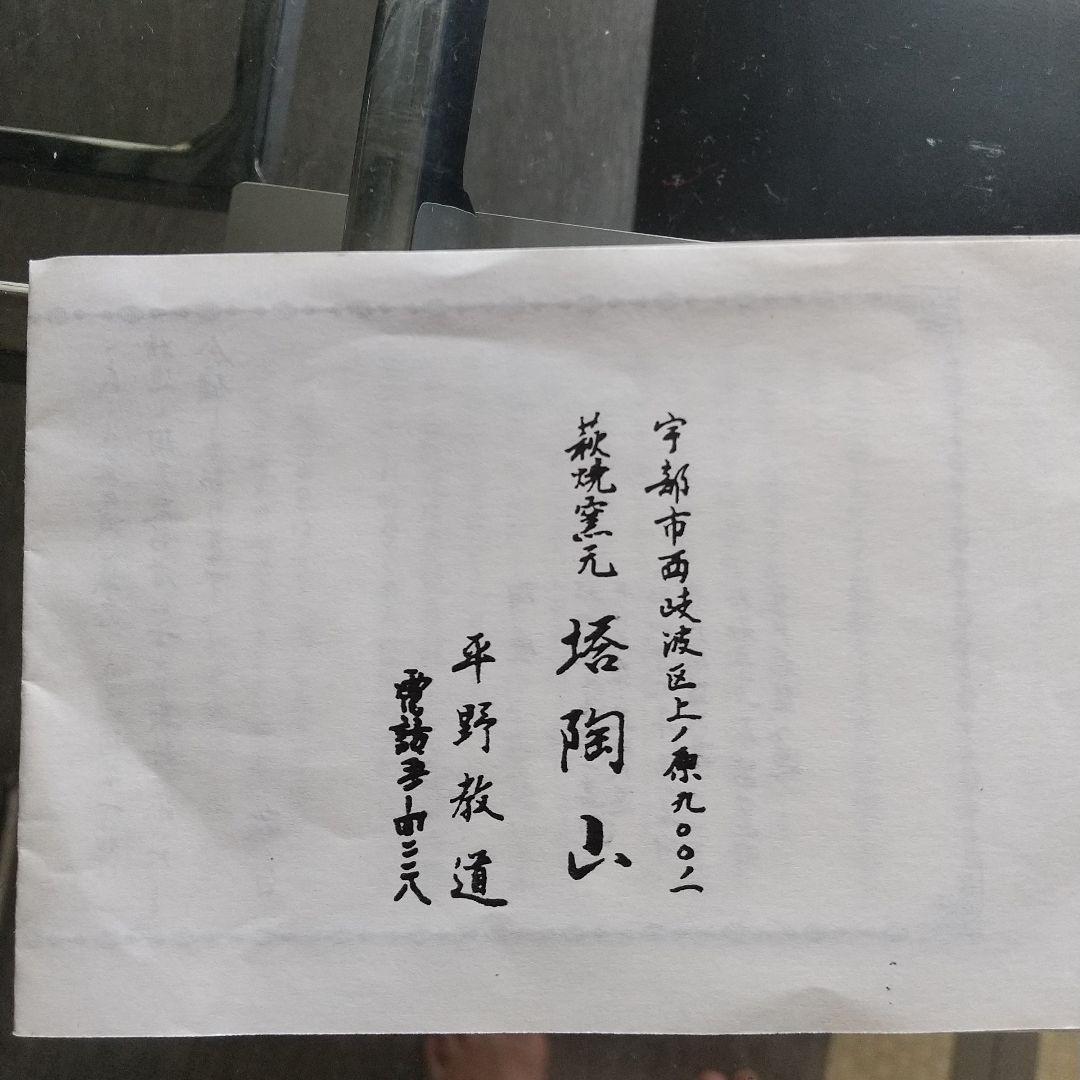 宇部市西岐波区上ノ原九〇〇ノ一
萩焼窯元 塔陶山
平野教道
電話 二二八